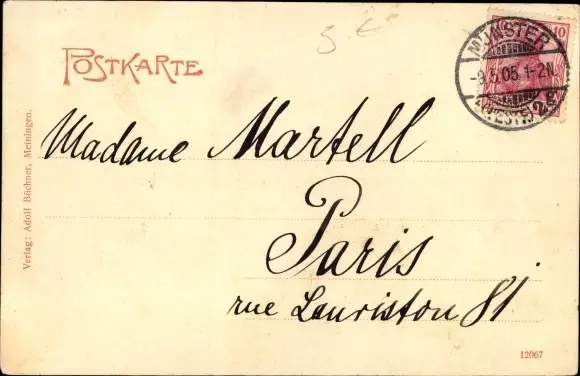 5 €
POSTKARTE
MÜNSTER
-9.5.05.1-2N.
(WESTF.) 2 g
10
Madame Martell
Paris
rue Lauriston 81
Verlag: Adolf Büchner, Meiningen.
12067